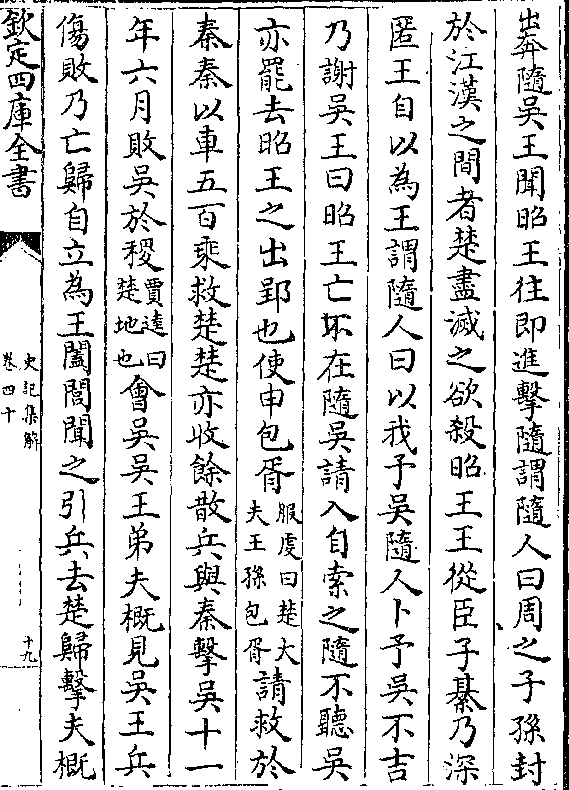 出奔隨吳王聞昭王往即進擊隨謂隨人曰周之子孫封
於江漢之間者楚盡滅之欲殺昭王王從臣子綦乃深
匿王自以為王謂隨人曰以我予吳隨人卜予吳不吉
乃謝吳王曰昭王亡不在隨吳請入自索之隨不聽吳
亦罷去昭王之出郢也使申包胥服䖍曰楚大夫王孫包胥請救於
秦秦以車五百乘救楚楚亦收餘散兵與秦擊吳十一
年六月敗吳於稷賈逵曰楚地也會吳吳王弟夫概見吳王兵
傷敗乃亡歸自立為王闔閭聞之引兵去楚歸擊夫概
欽定四庫全書
史記集解
卷四十
十九